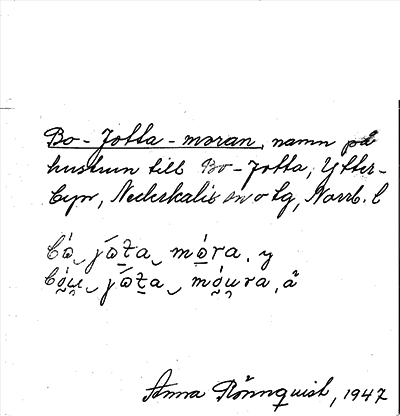 Bo-Jotta-moran, namn på
hustrun till Bo-Jotta, Ytter-
byn, Nederkalix sn o tg, Norrb. l
bó̱‿jó̱ta‿mó̱ra, y
jó̱ta‿ å
Anna Rönnquist, 1947